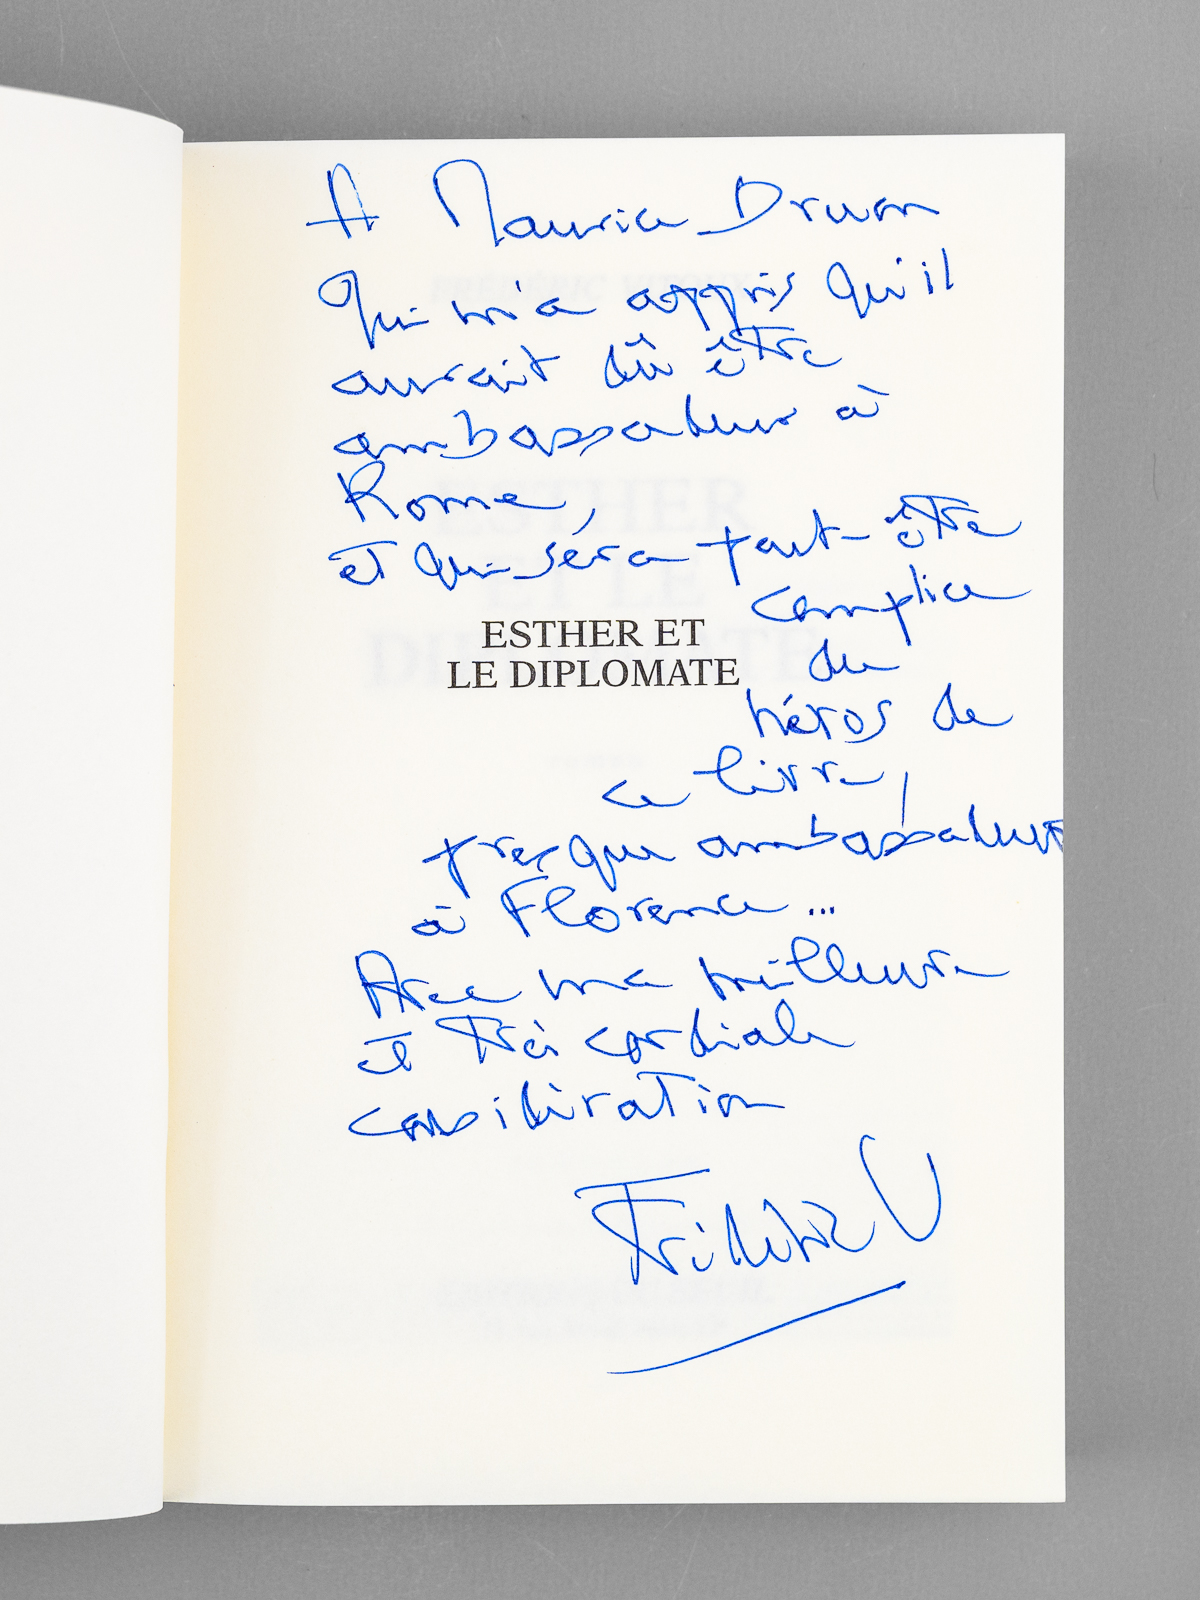 A Maurice Druon
qui m'a appris qu'il
aurait dû être
ambassadeur à
Rome,
et qui sera peut-être
complice
du
héros de
ce livre,
presque ambassadeur
à Florence...
Avec ma meilleure
et très cordiale
considération
Frédéric V
ESTHER ET
LE DIPLOMATE